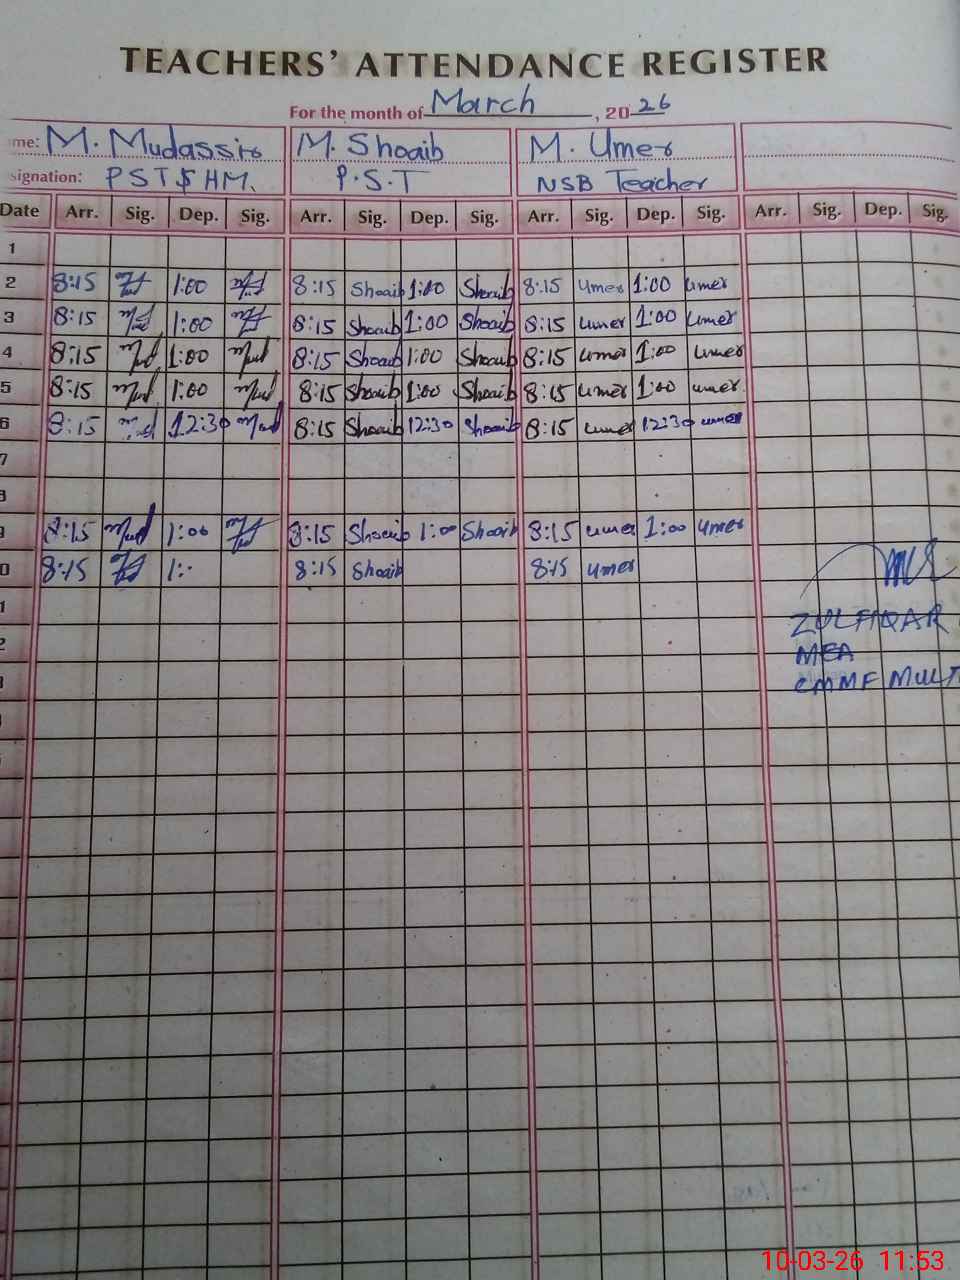 TEACHERS' ATTENDANCE REGISTER
For the month of March, 2026
me: M. Mudassir M. Shoaib M. Umer
signation: PST $ HM. P.S.T NSB Teacher
Date Arr. Sig. Dep. Sig. Arr. Sig. Dep. Sig. Arr. Sig. Dep. Sig. Arr. Sig. Dep. Sig.
1
2 8:15 1:00 8:15 Shoaib 1:00 Shoaib 8:15 umer 1:00 umer
3 8:15 1:00 8:15 Shoaib 1:00 Shoaib 8:15 umer 1:00 umer
4 8:15 1:00 8:15 Shoaib 1:00 Shoaib 8:15 umer 1:00 umer
5 8:15 1:00 8:15 Shoaib 1:00 Shoaib 8:15 umer 1:00 umer
6 8:15 12:30 8:15 Shoaib 12:30 Shoaib 8:15 umer 12:30 umer
7
8
9 8:15 1:00 8:15 Shoaib 1:00 Shoaib 8:15 umer 1:00 umer
0 8:15 1:- 8:15 Shoaib 8:15 umer
1
2
3
ZULFIQAR
MEA
CMMF MULT
10-03-26 11:53